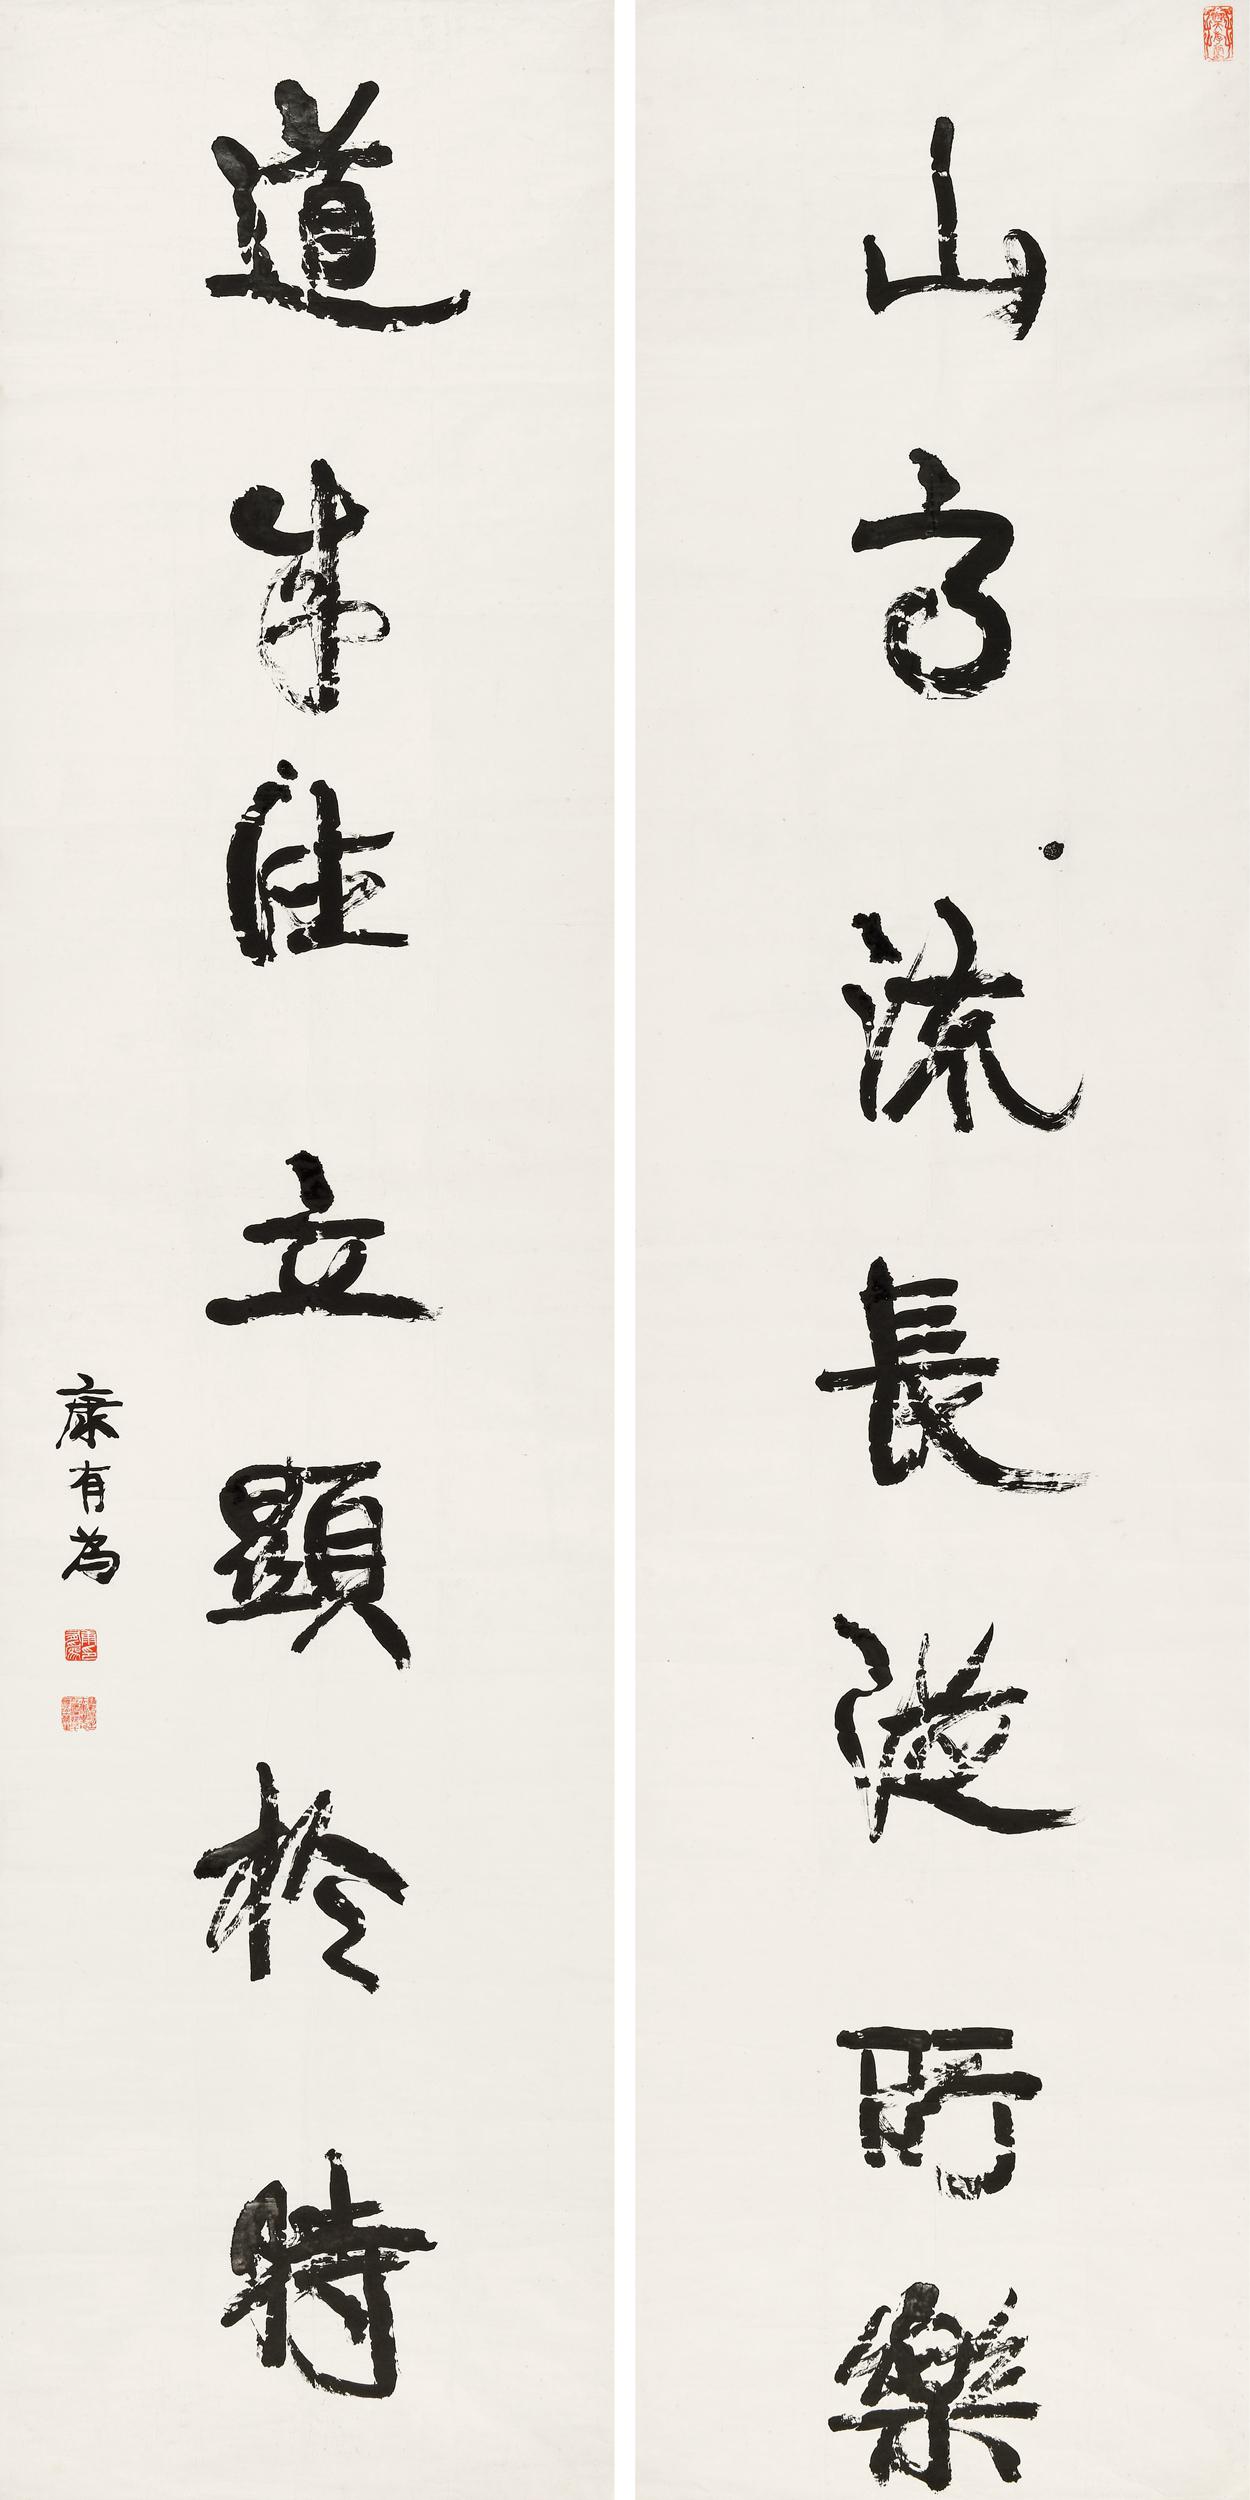 山高流長從所樂
道立顯於時
康有為